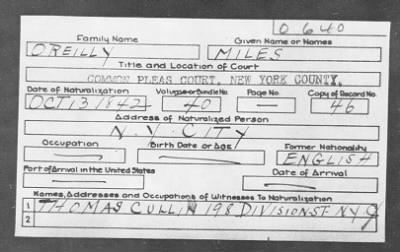 O 640
Family Name Given Name or Names
OREILLY MILES
Title and Location of Court
COMMON PLEAS COURT, NEW YORK COUNTY.
Date of Naturalization Volume or Bundle No. Page No. Copy of Record No.
OCT 13 1842 40 — 46
Address of Naturalized Person
N.Y. CITY
Occupation Birth Date or Age Former Nationality
— — ENGLISH
Port of Arrival in the United States Date of Arrival
— —
Names, Addresses and Occupations of Witnesses To Naturalization
1 THOMAS CULLIN 198 DIVISION ST NY
2